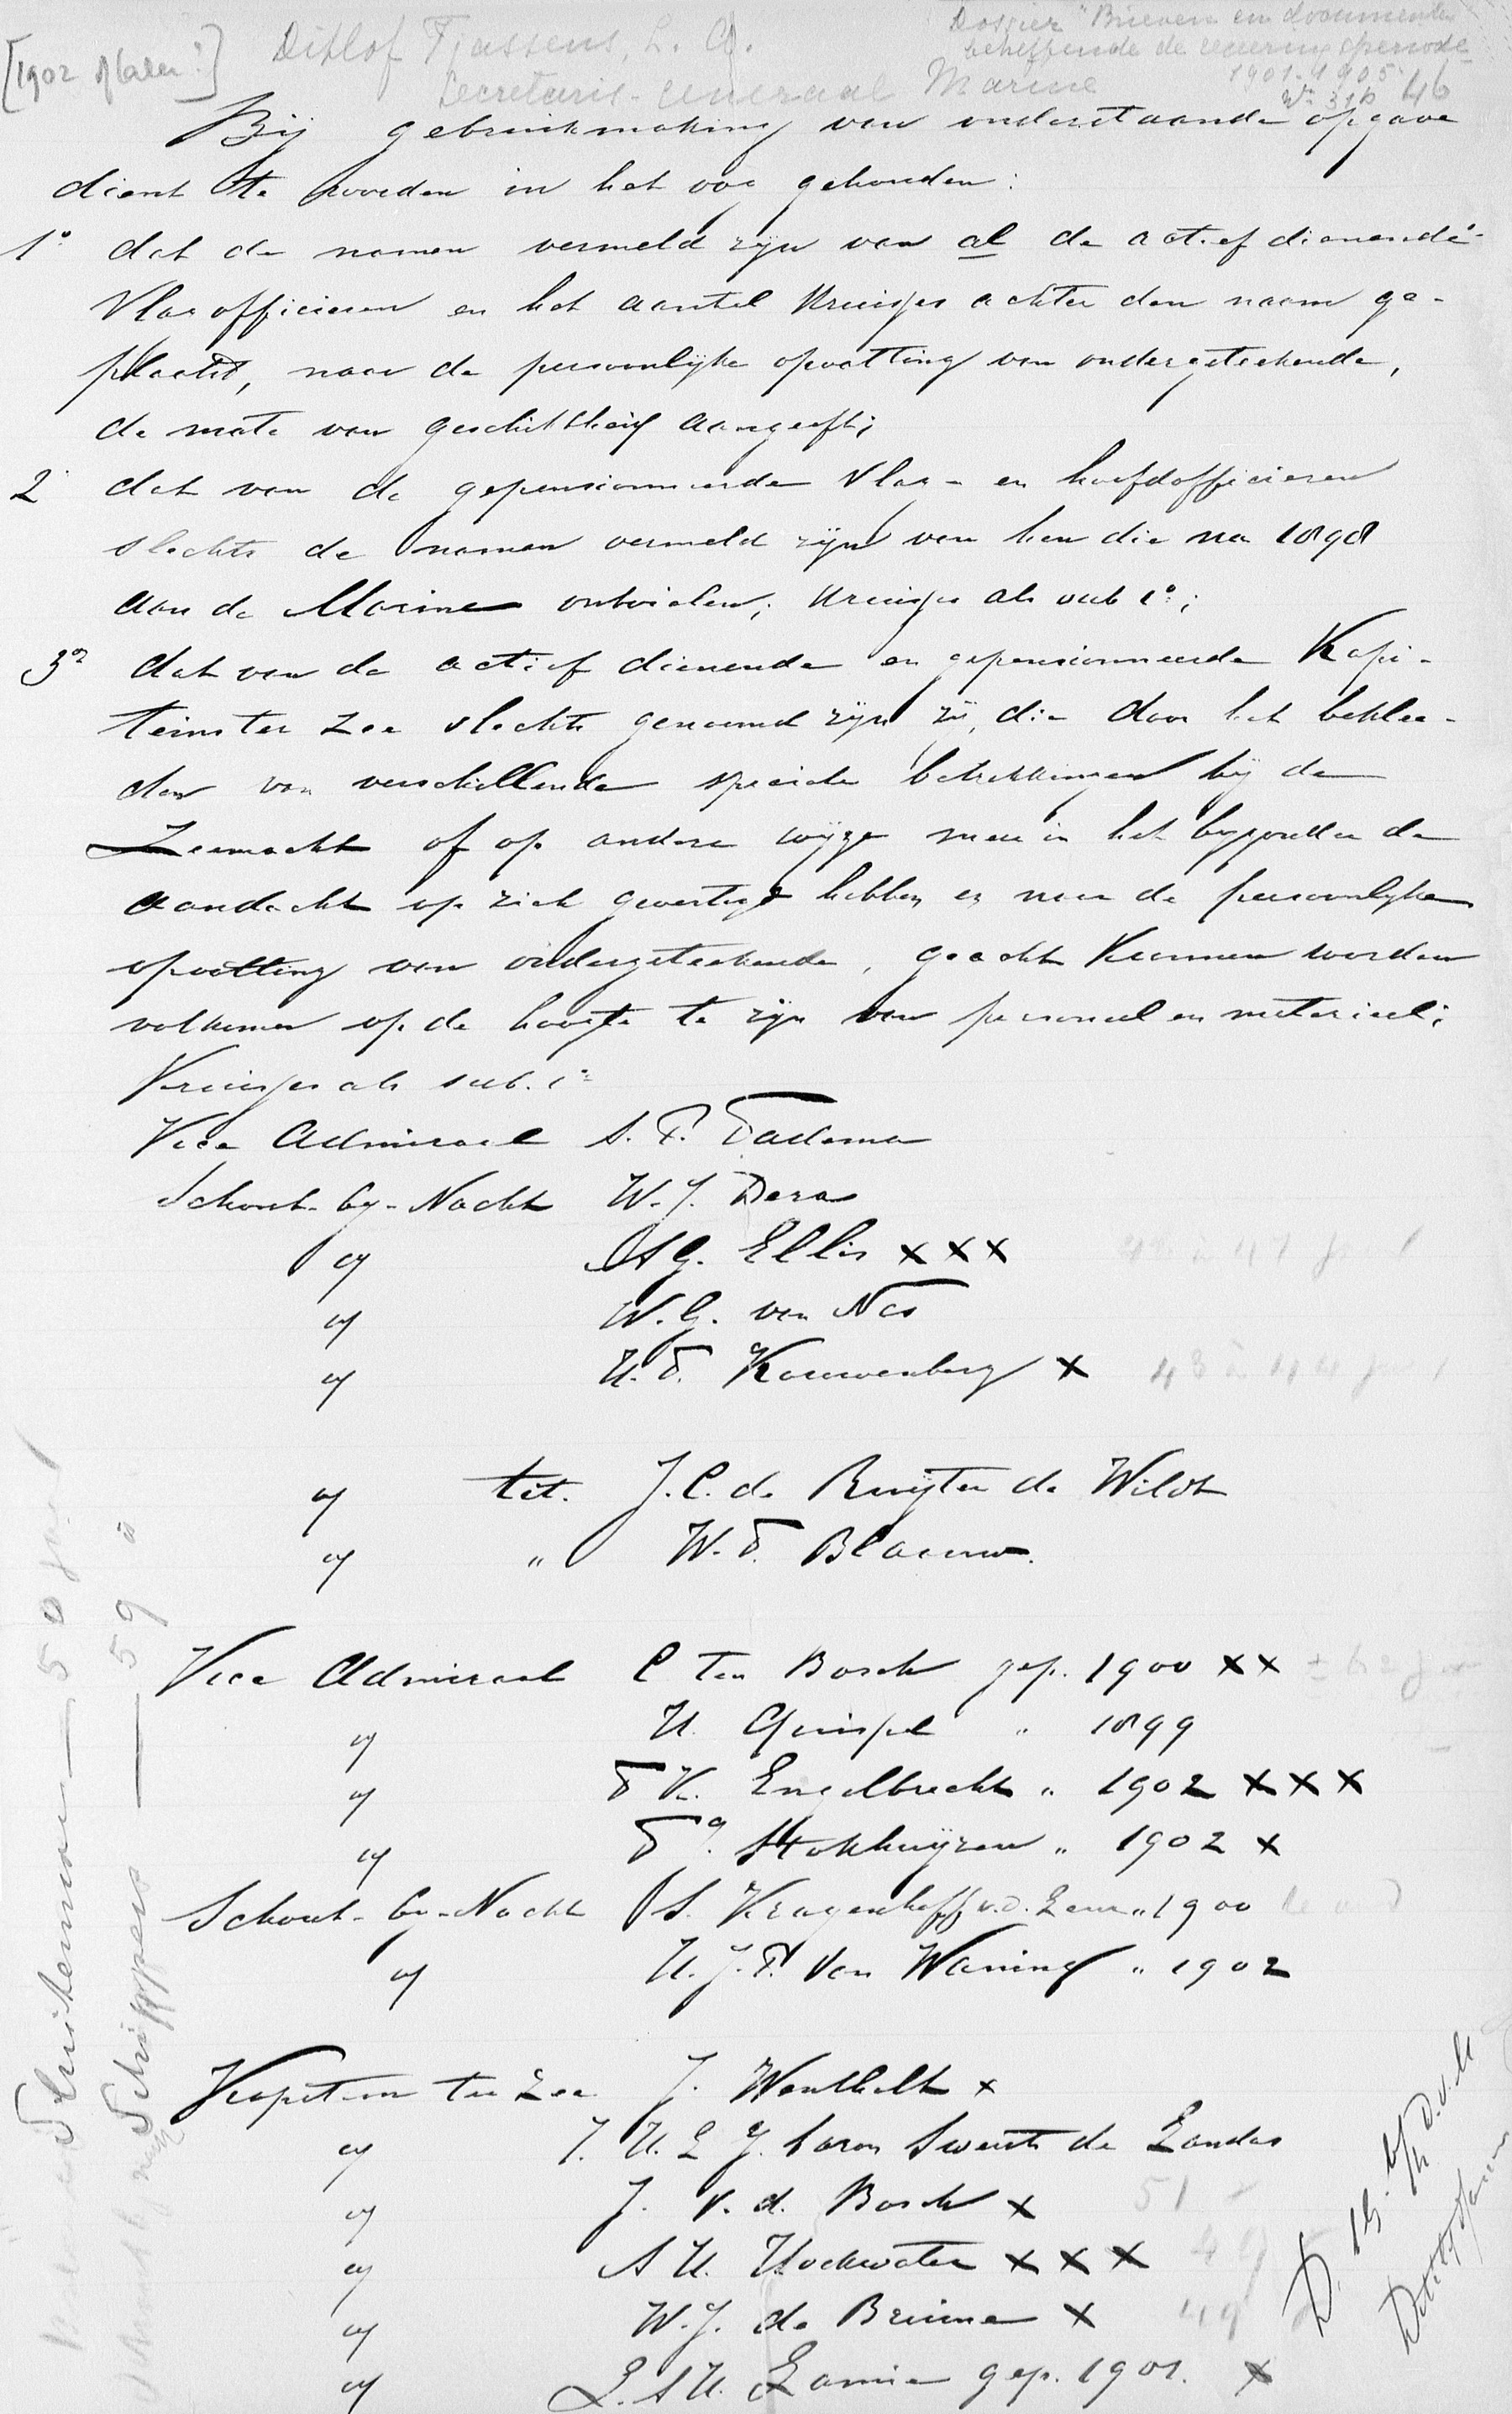 [1902 Maart?]
Ditlof Tjassens, L. A.
Secretaris-Generaal Marine
Dossier "Brieven en documenten
betreffende de regeeringsperiode
1901-1905"
No 31b 46
Bij gebruikmaking van onderstaande opgave
dient te worden in het oog gehouden:
1o dat de namen vermeld zijn van al de actief dienende
Vlagofficieren en het aantal kruisjes achter den naam ge-
plaatst, naar de persoonlijke opvatting van ondergeteekende,
de mate van geschiktheid aangeeft;
2 dat van de gepensionneerde Vlag- en hoofdofficieren
slechts de namen vermeld zijn van hen die na 1898
aan de Marine ontvielen; kruisjes als sub 1o;
3o dat van de actief dienende en gepensionneerde Kapi-
teins ter Zee slechts genoemd zijn zij, die door het beklee-
den van verschillende speciale betrekkingen bij de
Zeemacht of op andere wijze meer in het bijzonder de
aandacht op zich gevestigd hebben en naar de persoonlijke
opvatting van ondergeteekende, geacht kunnen worden
volkomen op de hoogte te zijn van personeel en materieel;
Kruisjes als sub. 1o
Vice Admiraal A. P. Tadema
Schout-by-Nacht W. J. Derx
" A G. Ellis x x x
" W. G. van Nes
" H. D. Kouwenberg x 43 à 44 jr
" tit. J. C. de Ruijter de Wildt
" " W. D. Blaauw.
Vice Admiraal C ten Bosch gep. 1900 x x ± 62 jr
" H. Quispel " 1899
" F K. Engelbrecht " 1902 x x x
" F. Stokhuyzen " 1902 x
Schout-by-Nacht S. Kragenhoff v.d. Leur " 1900 te oud
" H. J. P. van Waning " 1902
Kapitein ter Zee J. Wentholt x
" J. H. L J. baron Sweerts de Landas
" J. v. d. Bosch x 51
" A H. Hoekwater x x x 49
" W. J. de Bruine x 49
" L. A H. Lamie gep. 1901. x
Fluitenman — 50 jr
Schippers — 59 "